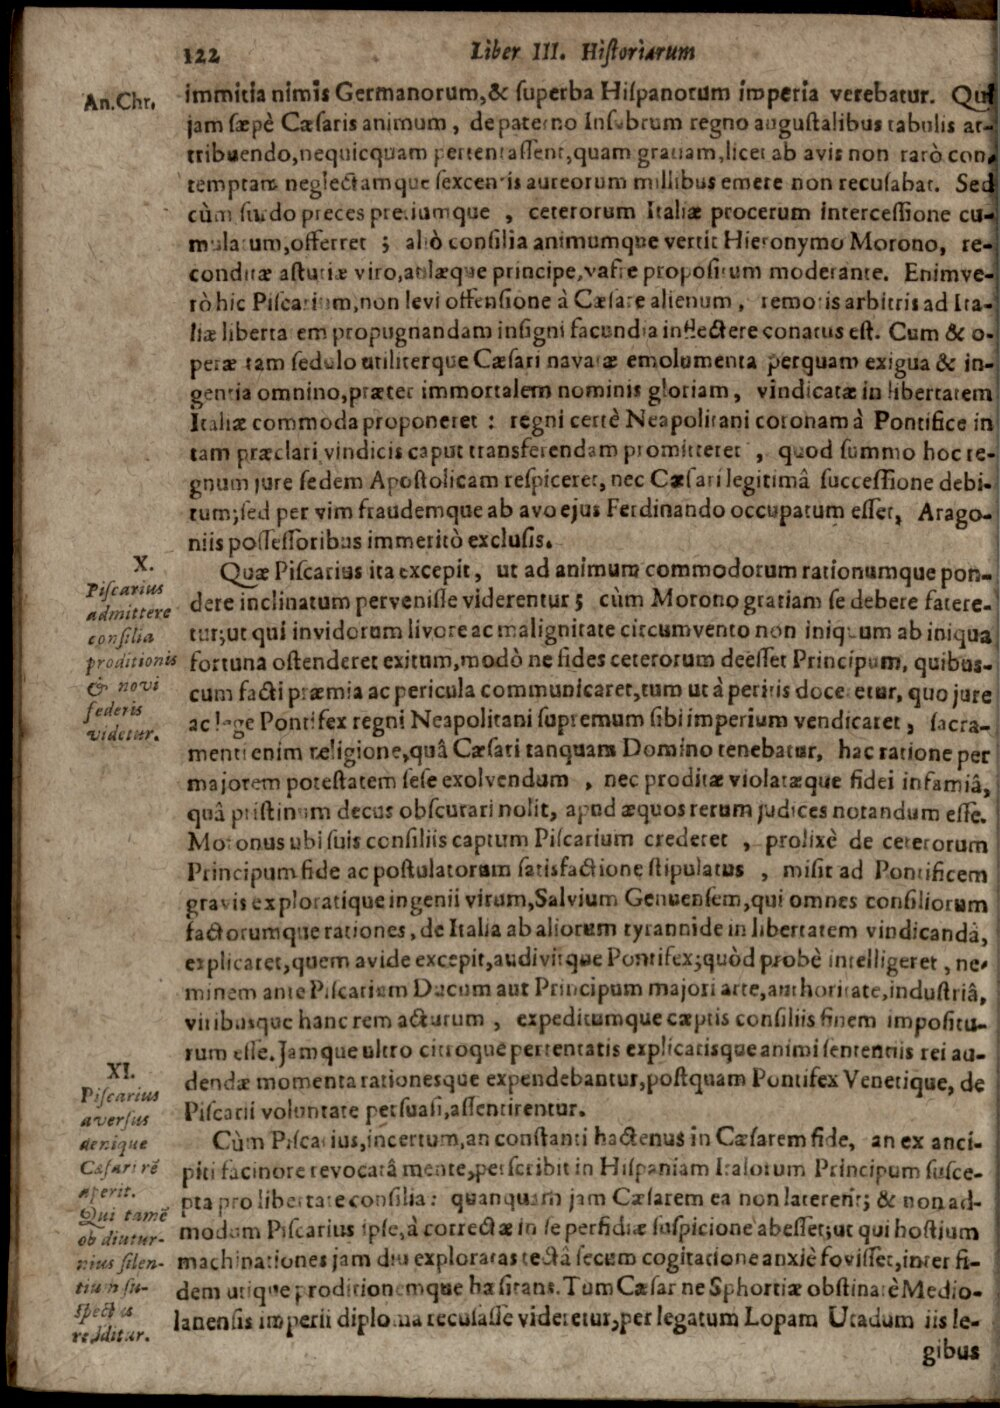 122 Liber III. Historiarum
An.Chr.
immitia nimis Germanorum,& superba Hispanorum imperia verebatur. Qui
jam sæpè Cæsaris animum, de paterno Insubrum regno augustalibus tabulis at-
tribuendo,nequicquam pertentassent,quam gratiam,licet ab avis non rarò con-
temptam neglectamque sexcentis aureorum millibus emere non recusabat. Sed
cùm surdo preces pretiumque, ceterorum Italiæ procerum intercessione cu-
mulatum,offerret; aliò consilia animumque vertit Hieronymo Morono, re-
conditæ astutiæ viro,aulæque principe,vafre propositum moderante. Enimve-
rò hic Piscarium,non levi offensione à Cæsare alienum, remotis arbitris ad Ita-
liæ libertatem propugnandam insigni facundia inflectere conatus est. Cum & o-
peræ tam sedulo utiliterque Cæsari navatæ emolumenta perquam exigua & in-
gentia omnino,præter immortalem nominis gloriam, vindicatæ in libertatem
Italiæ commoda proponeret: regni certè Neapolitani coronam à Pontifice in
tam præclari vindicis caput transferendam promitteret, quod summo hoc re-
gnum jure sedem Apostolicam respiceret, nec Cæsari legitimâ successione debi-
tum;sed per vim fraudemque ab avo ejus Ferdinando occupatum esset, Arago-
niis possessoribus immeritò exclusis.
X.
Piscarius
admittere
consilia
proditionis
& novi
federis
videtur.
Quæ Piscarius ita excepit, ut ad animum commodorum rationumque pon-
dere inclinatum pervenisse viderentur; cùm Morono gratiam se debere fatere-
tur;ut qui invidorum livore ac malignitate circumvento non iniquum ab iniqua
fortuna ostenderet exitum,modò ne fides ceterorum deesset Principum, quibus-
cum facti præmia ac pericula communicaret,tum ut à peritis doceretur, quo jure
ac lege Pontifex regni Neapolitani supremum sibi imperium vendicaret, sacra-
menti enim religione,quâ Cæsari tanquam Domino tenebatur, hac ratione per
majorem potestatem sese exolvendum, nec proditæ violatæque fidei infamiâ,
quâ pristinum decus obscurari nolit, apud æquos rerum judices notandum esse.
Moronus ubi suis consiliis captum Piscarium crederet, prolixè de ceterorum
Principum fide ac postulatorum satisfactione stipulatus, misit ad Pontificem
gravis exploratique ingenii virum,Salvium Genuensem,qui omnes consiliorum
factorumque rationes, de Italia ab aliorum tyrannide in libertatem vindicandâ,
explicaret,quem avide excepit,audivitque Pontifex;quòd probè intelligeret, ne-
minem ante Piscarium Ducum aut Principum majori arte,authoritate,industriâ,
viribusque hanc rem acturum, expeditumque cæptis consiliis finem impositu-
rum esse. Jamque ultro citroque pertentatis explicatisque animi sententiis rei au-
dendæ momenta rationesque expendebantur,postquam Pontifex Venetique, de
Piscarii voluntate persuasi,assentirentur.
XI.
Piscarius
aversus
denique
Cæsari rē
aperit.
Qui tamē
ob diutur-
nius silen-
tium su-
spectus
redditur.
Cùm Piscarius,incertum,an constanti hactenus in Cæsarem fide, an ex anci-
piti facinore revocatâ mente,perscribit in Hispaniam Italorum Principum susce-
pta pro libertate consilia: quanquam jam Cæsarem ea non laterent; & non ad-
modum Piscarius ipse,à correctæ in se perfidiæ suspicione abesset;ut qui hostium
machinationes jam diu exploratas tectâ secum cogitatione anxiè fovisset,inter fi-
dem utique proditionemque hæsitans. Tum Cæsar ne Sphortiæ obstinatè Medio-
lanensis imperii diploma recusasse videretur,per legatum Lopam Utadum iis le-
gibus